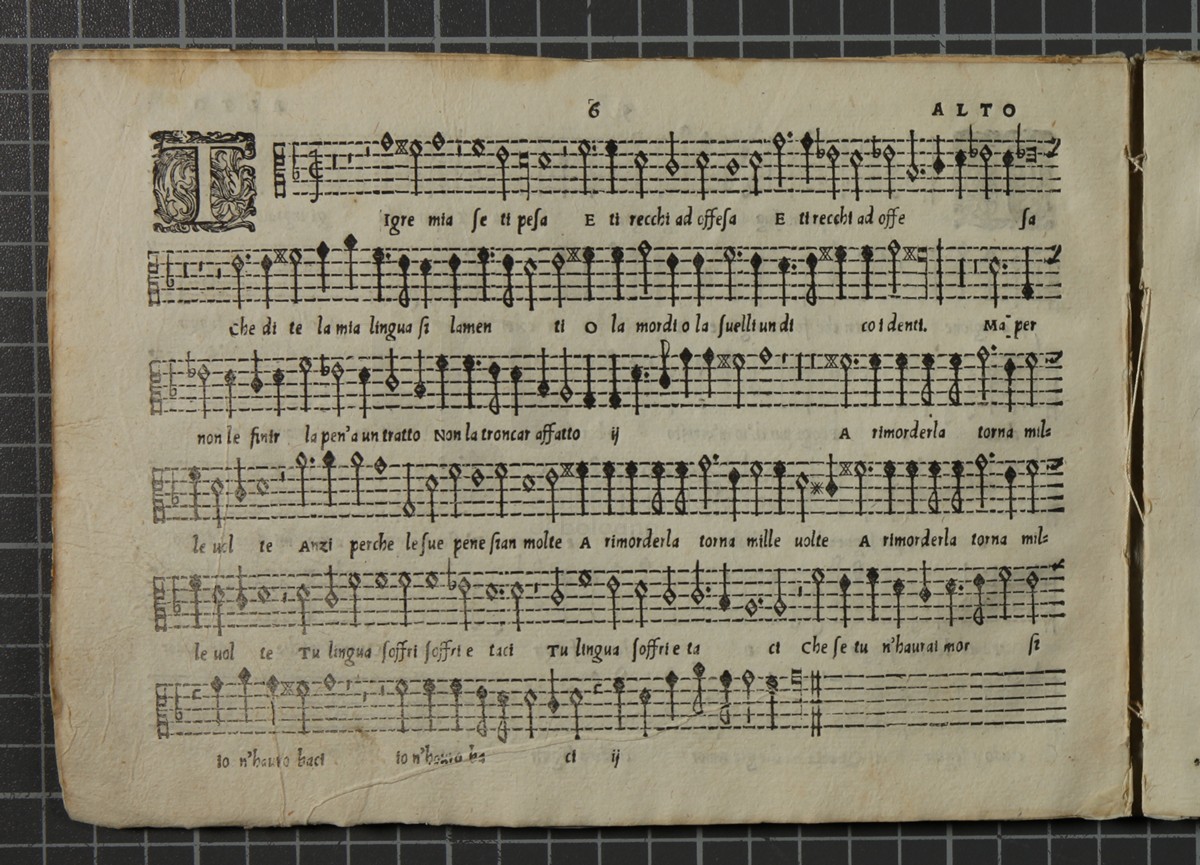 6 ALTO
TIgre mia se ti pesa E ti recchi ad offesa E ti recchi ad offe sa
Che di te la mia lingua si lamen ti O la mordi o la suelli un di co i denti. Ma per
non le finir la pen'a un tratto Non la troncar affatto ij A rimorderla torna mil=
le uol te Anzi perche le sue pene sian molte A rimorderla torna mille uolte A rimorderla torna mil=
le uol te Tu lingua soffri soffri e taci Tu lingua soffri e ta ci Che se tu n'haurai mor si
io n'hauro baci io n'hauro ba ci ij